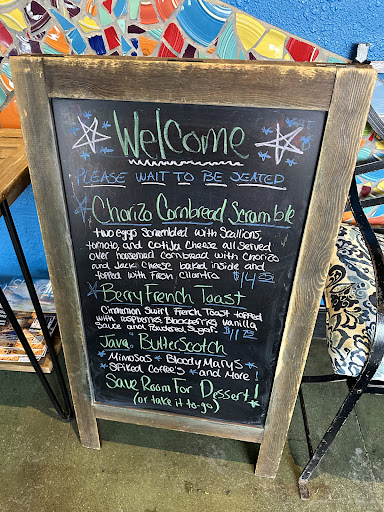 Welcome
PLEASE WAIT TO BE SEATED
Chorizo Cornbread Scramble
two eggs scrambled with Scallions,
tomato, and cotija cheese all served
over housemade cornbread with chorizo
and Jack cheese baked inside and
topped with fresh cilantro $14
Berry French Toast
Cinnamon Swirl French Toast topped
with raspberries, Blackberries vanilla
Sauce and Powdered Sugar $11
Java: Butterscotch
Mimosas Bloody Marys
Spiked Coffee's and More!
Save Room For Dessert!
(or take it to-go)